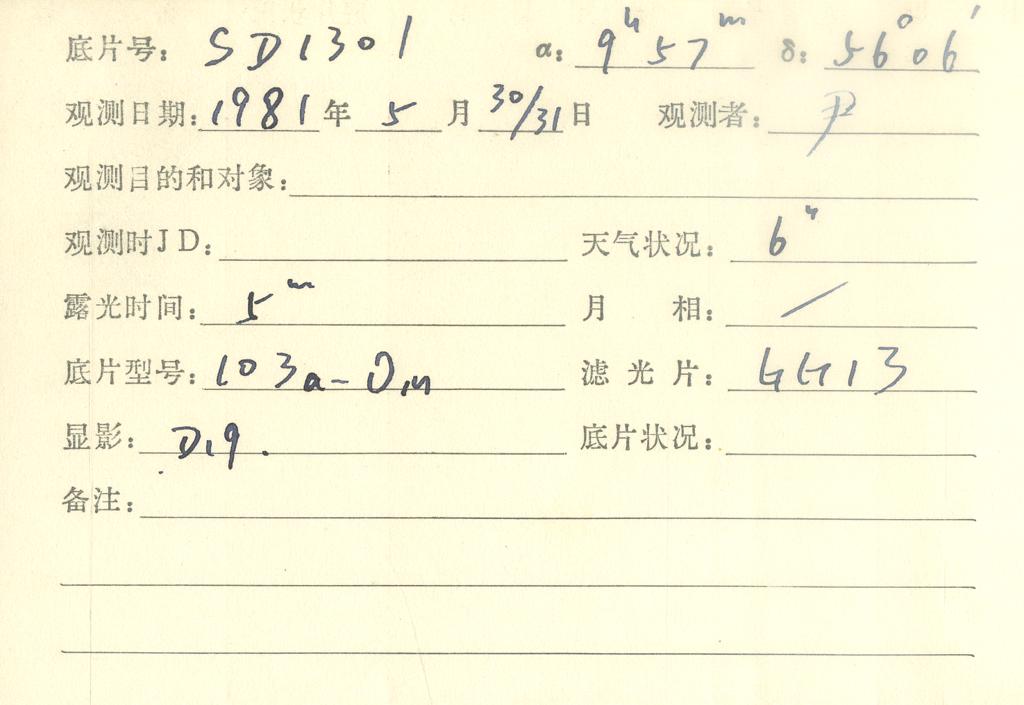 底片号: SD1301 α: 9h 57m δ: 56° 06′
观测日期: 1981 年 5 月 30/31 日 观测者: 尹
观测目的和对象:
观测时JD: 天气状况: 6h
露光时间: 5m 月 相: /
底片型号: 103a-D 滤光片: GG13
显影: D19.
底片状况:
备注: